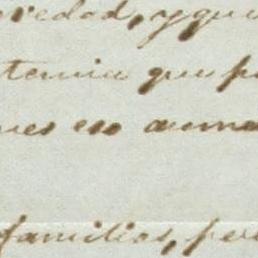 eredad, y que
temia que p
ues eso aume
familias, per